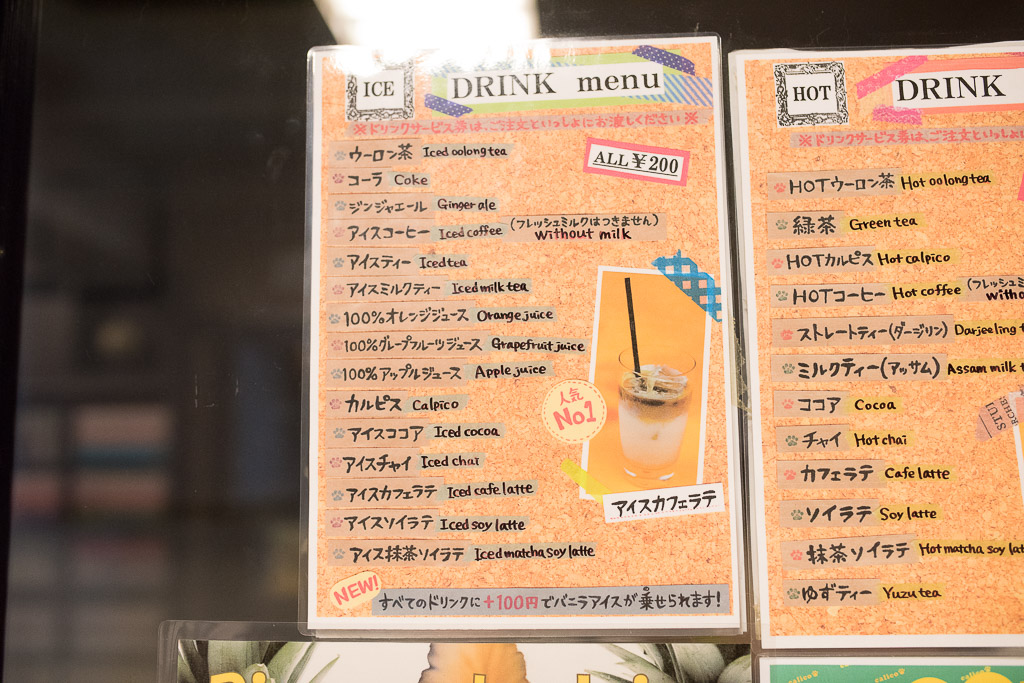 ICE
DRINK menu
※ドリンクサービス券は、ご注文といっしょにお渡しください※
ALL ¥200
ウーロン茶 Iced oolong tea
コーラ Coke
ジンジャエール Ginger ale
アイスコーヒー Iced coffee (フレッシュミルクはつきません)
without milk
アイスティー Iced tea
アイスミルクティー Iced milk tea
100%オレンジジュース Orange juice
100%グレープフルーツジュース Grapefruit juice
100%アップルジュース Apple juice
カルピス Calpico
アイスココア Iced cocoa
アイスチャイ Iced chai
アイスカフェラテ Iced cafe latte
アイスソイラテ Iced soy latte
アイス抹茶ソイラテ Iced matcha soy latte
人気
No.1
アイスカフェラテ
NEW!
すべてのドリンクに+100円でバニラアイスが乗せられます!
HOT
DRINK
※ドリンクサービス券は、ご注文とい
HOTウーロン茶 Hot oolong tea
緑茶 Green tea
HOTカルピス Hot calpico
HOTコーヒー Hot coffee (フレッシュミ
ストレートティー(ダージリン) Darjeeling t
ミルクティー(アッサム) Assam milk t
ココア Cocoa
チャイ Hot chai
カフェラテ Cafe latte
ソイラテ Soy latte
抹茶ソイラテ Hot matcha soy lat
ゆずティー Yuzu tea
calico
calico